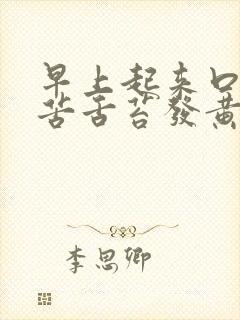 早上起来口
苦舌苔發黄
李思卿